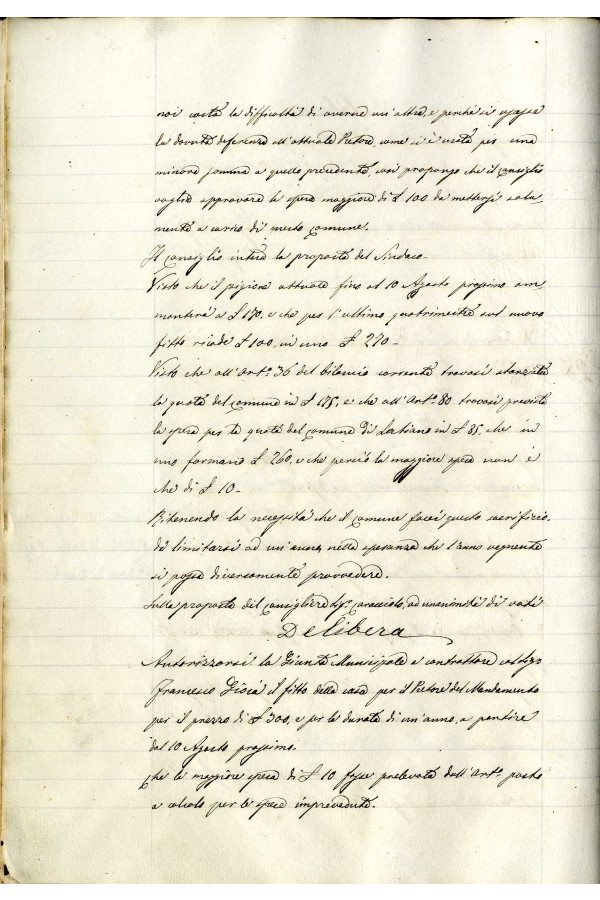 noi costà la difficoltà di averne un'altra, e perché si usasse
la dovuta deferenza all'attuale Pretore, come si è usata per una
minore somma a quello precedente, così propongo che il Consiglio
voglia approvare la spesa maggiore di £ 100 da mettersi sola-
mente a carico di questo Comune.
Il Consiglio intesa la proposta del Sindaco.
Visto che il pigione attuale fino al 10 Agosto prossimo am-
monterà a £ 170, e che per l'ultimo quatrimestre sul nuovo
fitto ricade £ 100, in uno £ 270 -
Visto che all'art.º 36 del bilancio corrente trovasi stanziata
la quota del Comune in £ 175, e che all'Art.º 80 trovasi prevista
la spesa per la quota del Comune di Latiano in £ 85, che in
uno formano £ 260, e che perciò la maggiore spesa non è
che di £ 10 -
Ritenendo la necessità che il Comune facci questo sacrificio,
da limitarsi ad un'anno, nella speranza che l'anno vegnente
si possa diversamente provvedere.
Sulla proposta del Consigliere Caracciolo, ad unanimità di voti
Delibera
Autorizzarsi la Giunta Municipale a contrattare col
Francesco Gioia il fitto della casa per il Pretore del Mandamento
per il prezzo di £ 300, e per la durata di un'anno, a partire
dal 10 Agosto prossimo.
Che la maggiore spesa di £ 10 fosse prelevata dall'art.º posto
a calcolo per le spese imprevedute.